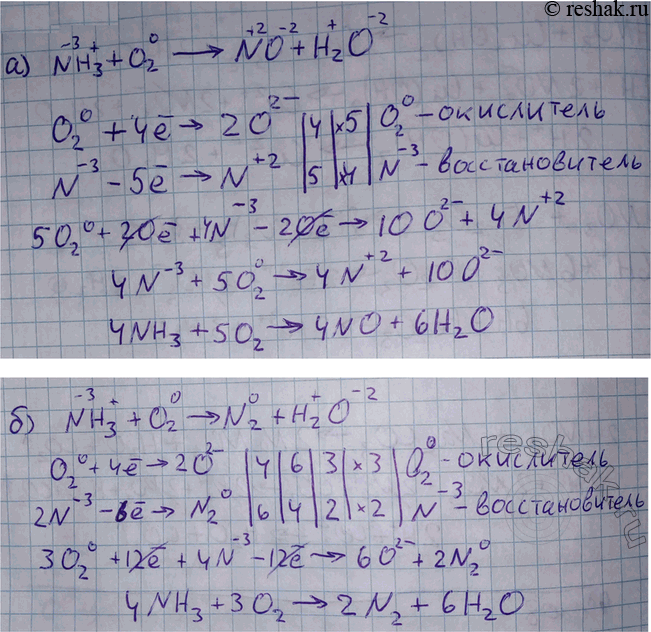 © reshak.ru
а) N⁻³H₃⁺ + O₂⁰ → N⁺²O⁻² + H₂⁺O⁻²
O₂⁰ + 4ē → 2O²⁻ | 4 | ×5 | O₂⁰ - окислитель
N⁻³ - 5ē → N⁺² | 5 | ×4 | N⁻³ - восстановитель
5O₂⁰ + 20ē + 4N⁻³ - 20ē → 10O²⁻ + 4N⁺²
4N⁻³ + 5O₂⁰ → 4N⁺² + 10O²⁻
4NH₃ + 5O₂ → 4NO + 6H₂O
б) N⁻³H₃⁺ + O₂⁰ → N₂⁰ + H₂⁺O⁻²
O₂⁰ + 4ē → 2O²⁻ | 4 | 6 | 3 | ×3 | O₂⁰ - окислитель
2N⁻³ - 6ē → N₂⁰ | 6 | 4 | 2 | ×2 | N⁻³ - восстановитель
3O₂⁰ + 12ē + 4N⁻³ - 12ē → 6O²⁻ + 2N₂⁰
4NH₃ + 3O₂ → 2N₂ + 6H₂O
reshak.ru